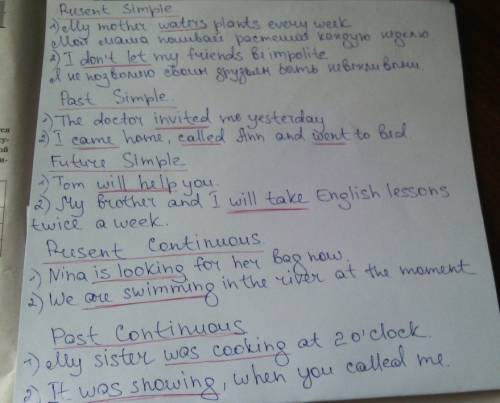 Present Simple
1) My mother waters plants every week
Моя мама поливает растения каждую неделю
2) I don't let my friends be impolite
Я не позволяю своим друзьям быть невежливыми.
Past Simple
1) The doctor invited me yesterday
2) I came home, called Ann and went to bed
Future Simple
1) Tom will help you.
2) My brother and I will take English lessons
twice a week.
Present Continuous
1) Nina is looking for her bag now.
2) We are swimming in the river at the moment
Past Continuous
1) My sister was cooking at 2 o'clock.
2) It was showing, when you called me.